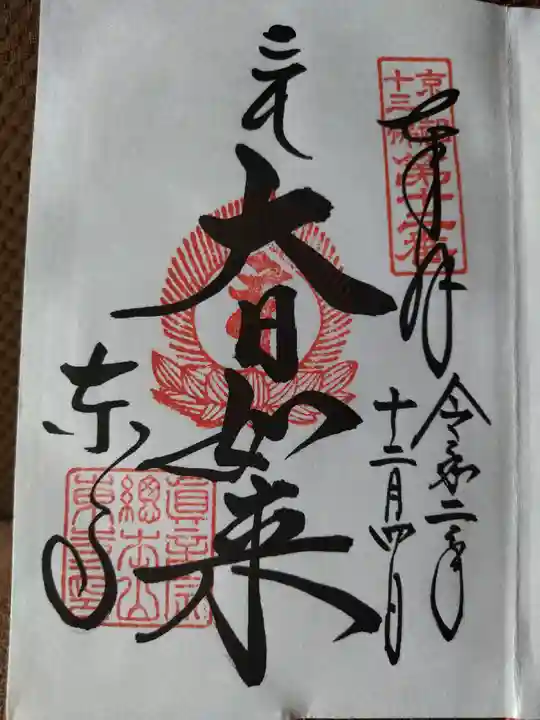 京都
十三佛第十二番
奉拝
令和二年
十二月四日
大日如来
真言宗
總本山
東寺